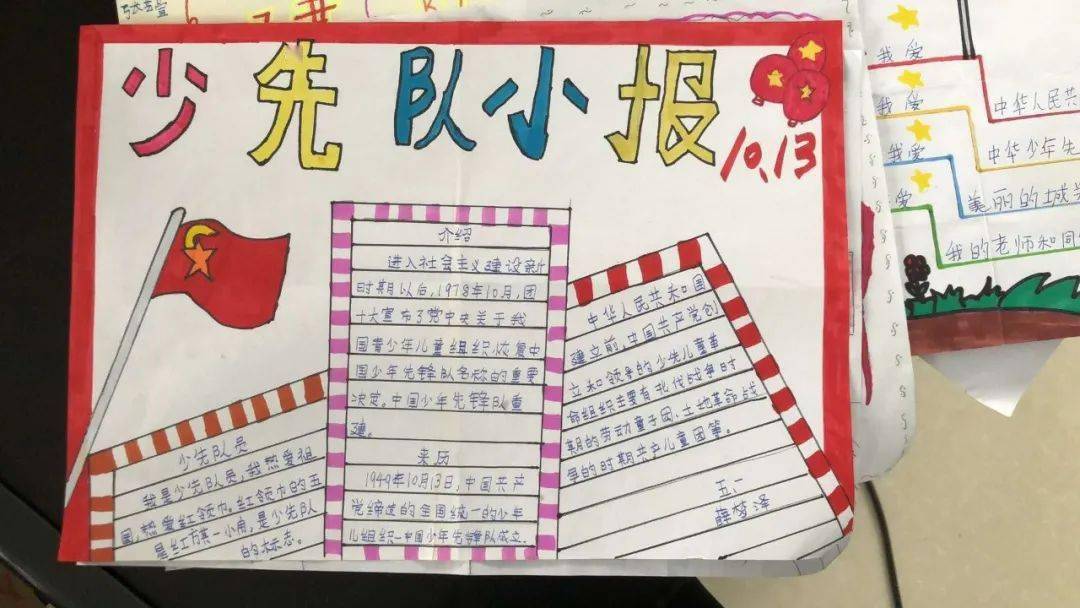 少先队小报
10.13
少先队员
我是少先队员,我热爱祖
国,热爱红领巾。红领巾的五
星红旗一小角,是少先队
的标志。
介绍
进入社会主义建设新
时期以后,1978年10月,团
十大宣布了党中央关于我
国青少年儿童组织恢复中
国少年先锋队名称的重要
决定。中国少年先锋队重
建。
来历
1949年10月13日,中国共产
党缔造的全国统一的少年
儿组织—中国少年先锋队成立.
中华人民共和国
建立前,中国共产党创
立和领导的少先儿童革
命组织主要有北伐战争时
期的劳动童子团、土地革命战
争的时期共产儿童团等。
五、一
薛梦泽
我爱
我爱
我爱
爱
中华人民共
中华少年先
美丽的城
我的老师和同